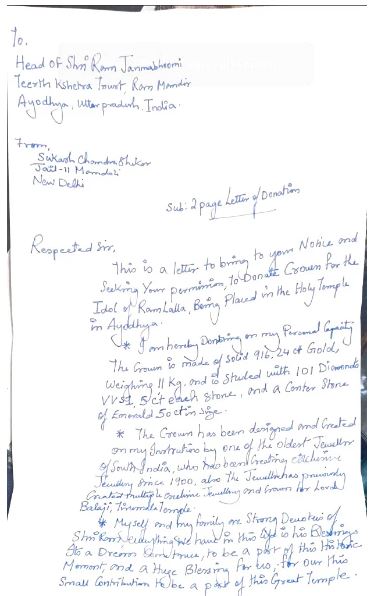 To,
Head of Shri Ram Janmabhoomi
Teerth Kshetra Trust Ram Mandir
Ayodhya, Uttar pradesh. India.
From,
Sukash Chandra Shekar
Jail-11 Mandoli
New Delhi
Sub: 2 page Letter of Donation
Respected Sir,
This is a letter to bring to your Notice and
Seeking Your permission, To Donate Crown for the
Idol of Ram Lalla, Being Placed in the Holy Temple
in Ayodhya.
* I am hereby Donating on my Personal Capacity
The Crown is made of Solid 916. 24 ct Gold,
Weighing 11 Kg, and is Studed with 101 Diamonds
VVS1, 5 ct each stone, and a Center Stone
of Emerald 50 ct in size.
* The Crown has been designed and Created
on my Instruction by one of the oldest Jeweller
of South India, who has been Creating
Jewellery Since 1900. also The Jeweller has previously
Created multiple Jewellery and Crown for Lord
Balaji, Tirumala Temple.
* Myself and my family are Strong Devotees of
Shri Ram everything we have in this Life is his Blessings
Its a Dream Come true, to be a part of this Historic
Moment, and a Huge Blessing for us, for our this
Small Contribution to be a part of this Great Temple.